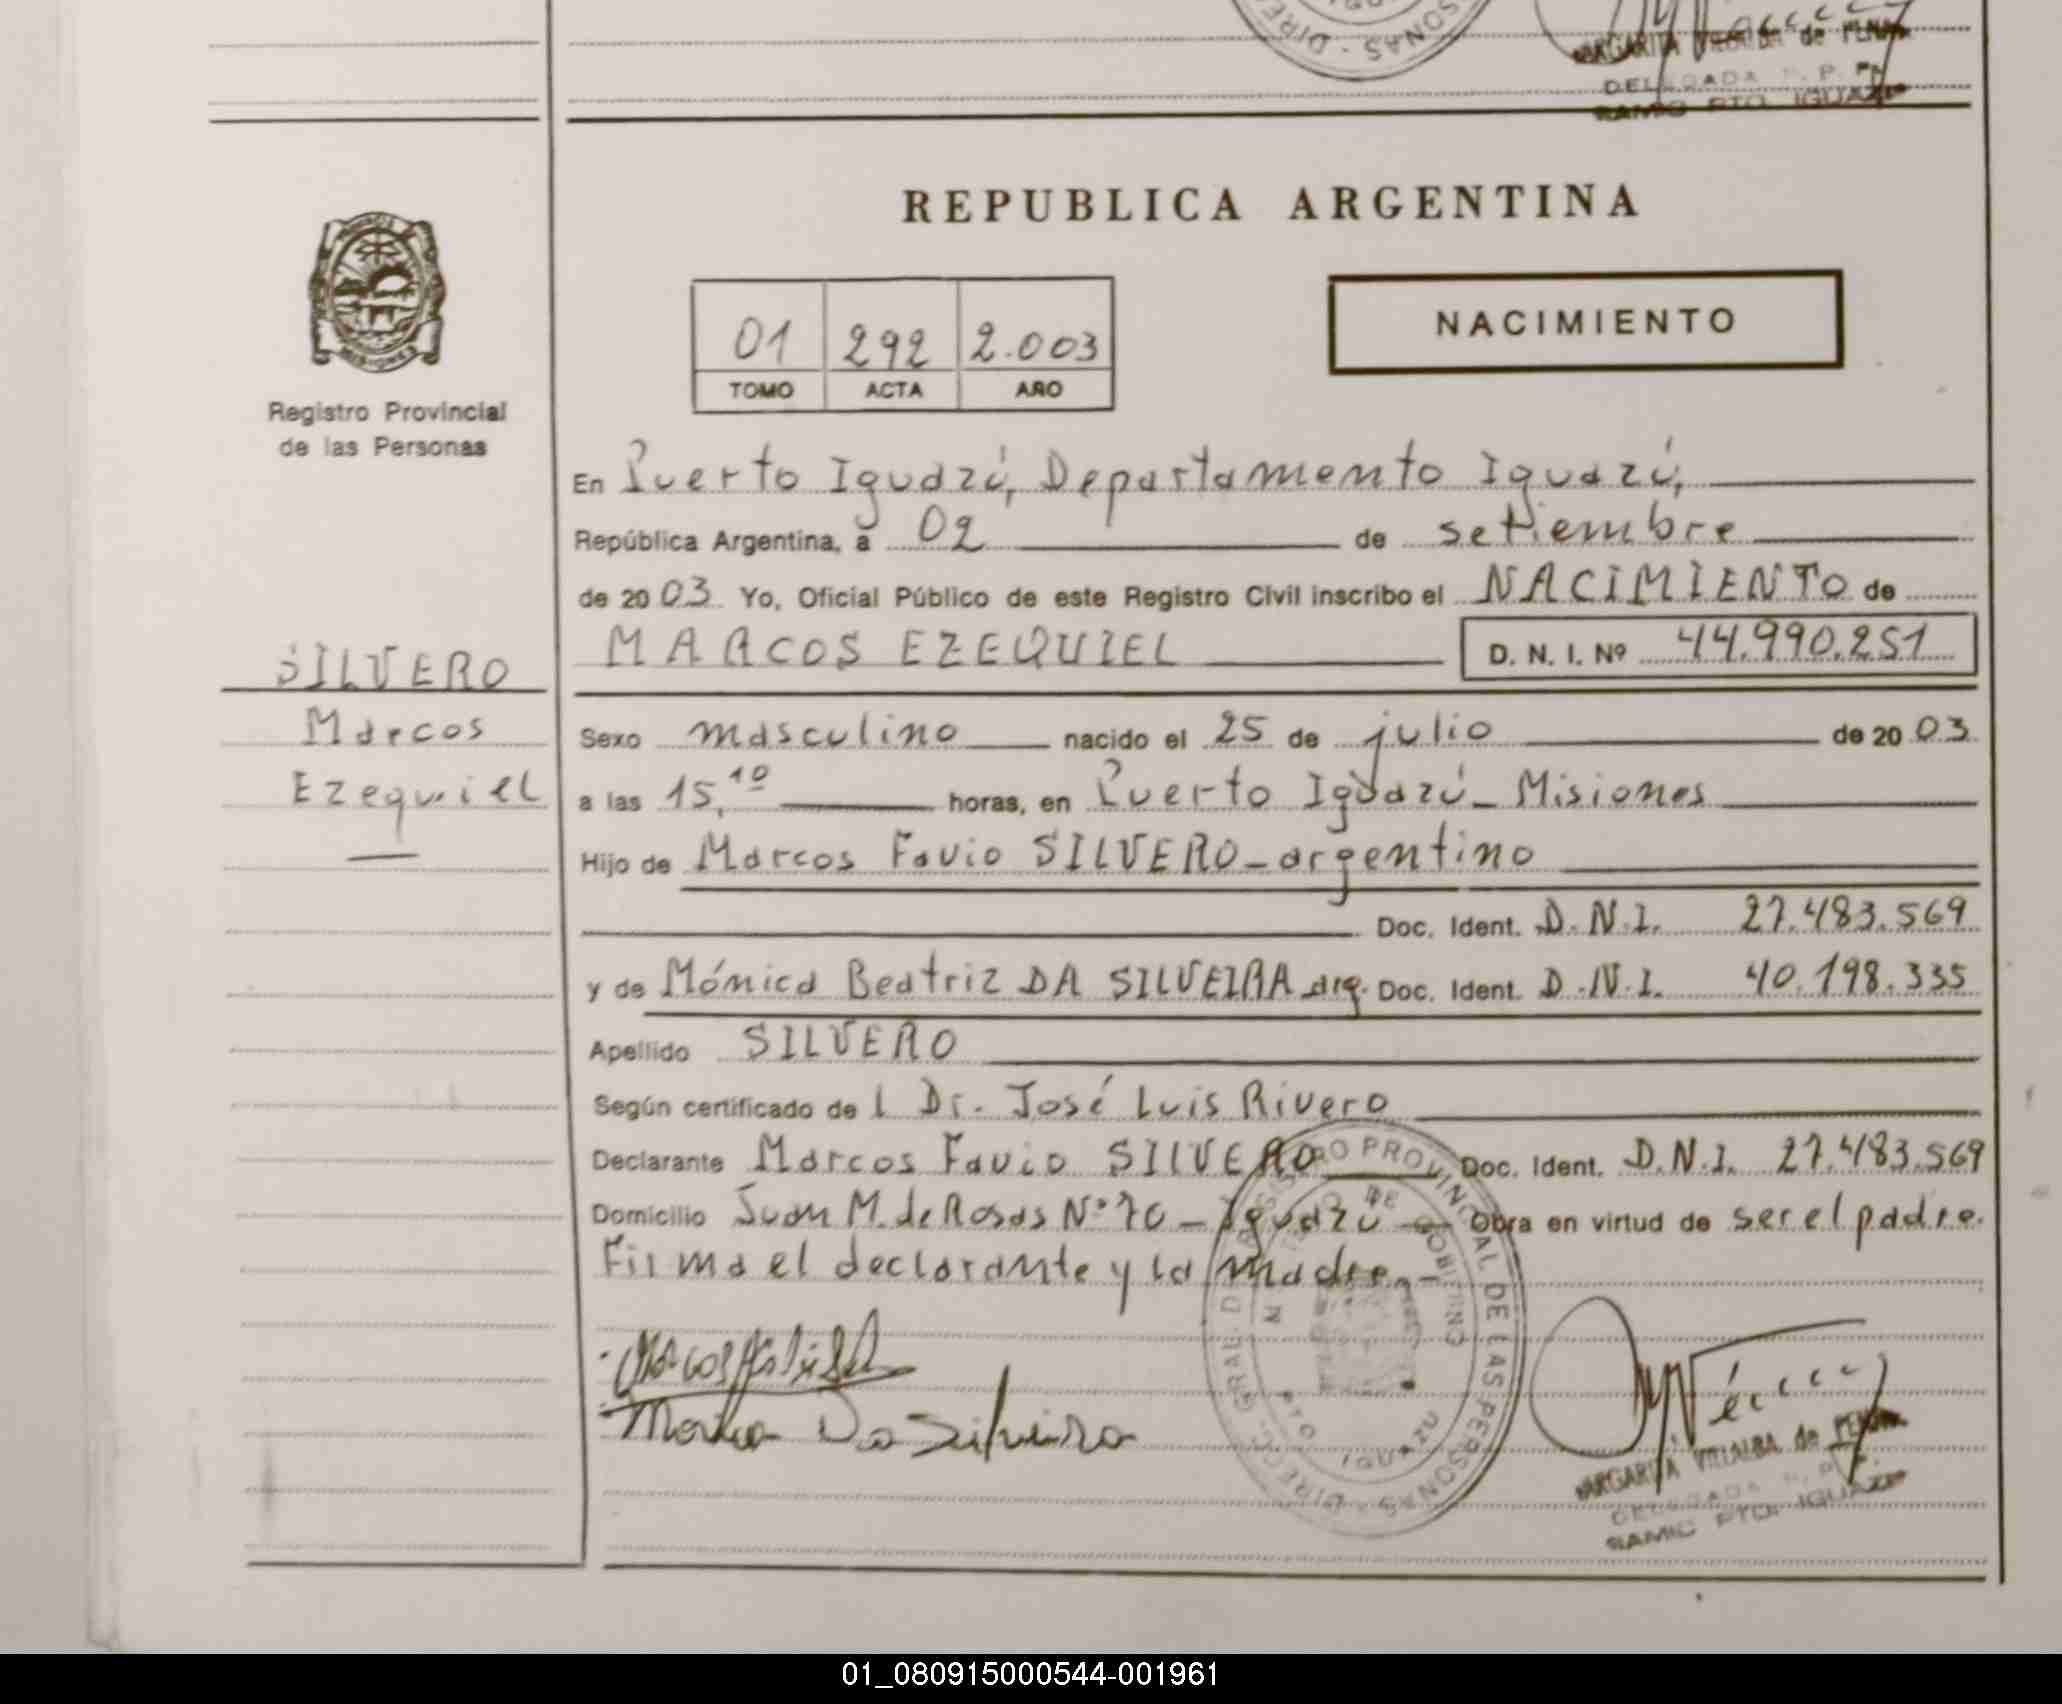 MARGARITA VILLALBA de PENA
DELEGADA R. P. P.
RAMIC PTO. IGUAZU
REPUBLICA ARGENTINA
Registro Provincial
de las Personas
01 292 2.003
TOMO ACTA AÑO
NACIMIENTO
En Puerto Iguazú, Departamento Iguazú,
República Argentina, a 02 de setiembre
de 20 03 Yo, Oficial Público de este Registro Civil inscribo el NACIMIENTO de
MARCOS EZEQUIEL D. N. I. Nº 44.990.251
SILVERO
Marcos
Ezequiel
Sexo masculino nacido el 25 de julio de 20 03
a las 15,10 horas, en Puerto Iguazú - Misiones
Hijo de Marcos Favio SILVERO - argentino
Doc. Ident. D.N.I. 27.483.569
y de Mónica Beatriz DA SILVEIRA arg. Doc. Ident. D.N.I. 40.198.335
Apellido SILVERO
Según certificado de l Dr. José Luis Rivero
Declarante Marcos Favio SILVERO Doc. Ident. D.N.I. 27.483.569
Domicilio Juan M. de Rosas Nº 70 - Iguazú - Obra en virtud de ser el padre.
Firma el declarante y la madre.
Monica Da Silveira
DIRECC. GRAL. DEL REGISTRO PROVINCIAL DE LAS PERSONAS
MINISTERIO DE GOBIERNO
PTO IGUAZU
MARGARITA VILLALBA de PENA
DELEGADA R. P.
RAMIC PTO. IGUAZU
01_080915000544-001961